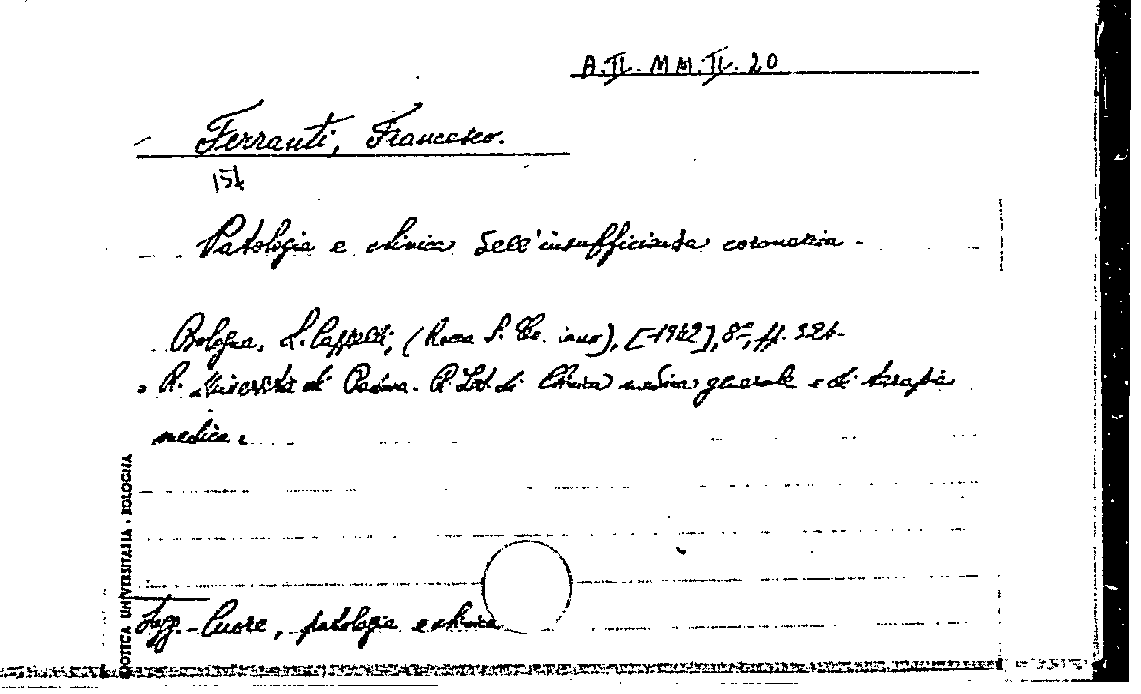 A.II. MM.II. 20
Ferranti, Francesco.
Patologia e clinica dell'insufficienza coronaria.
Bologna, L. Cappelli, (Rocca S. Ca. imp.), [1942], 8°, pp. 321.
R. Università di Padova. R. Ist. di Clinica medica generale e di terapia
medica.
Sogg. - Cuore, patologia e clinica
UNIVERSITARIA - BOLOGNA